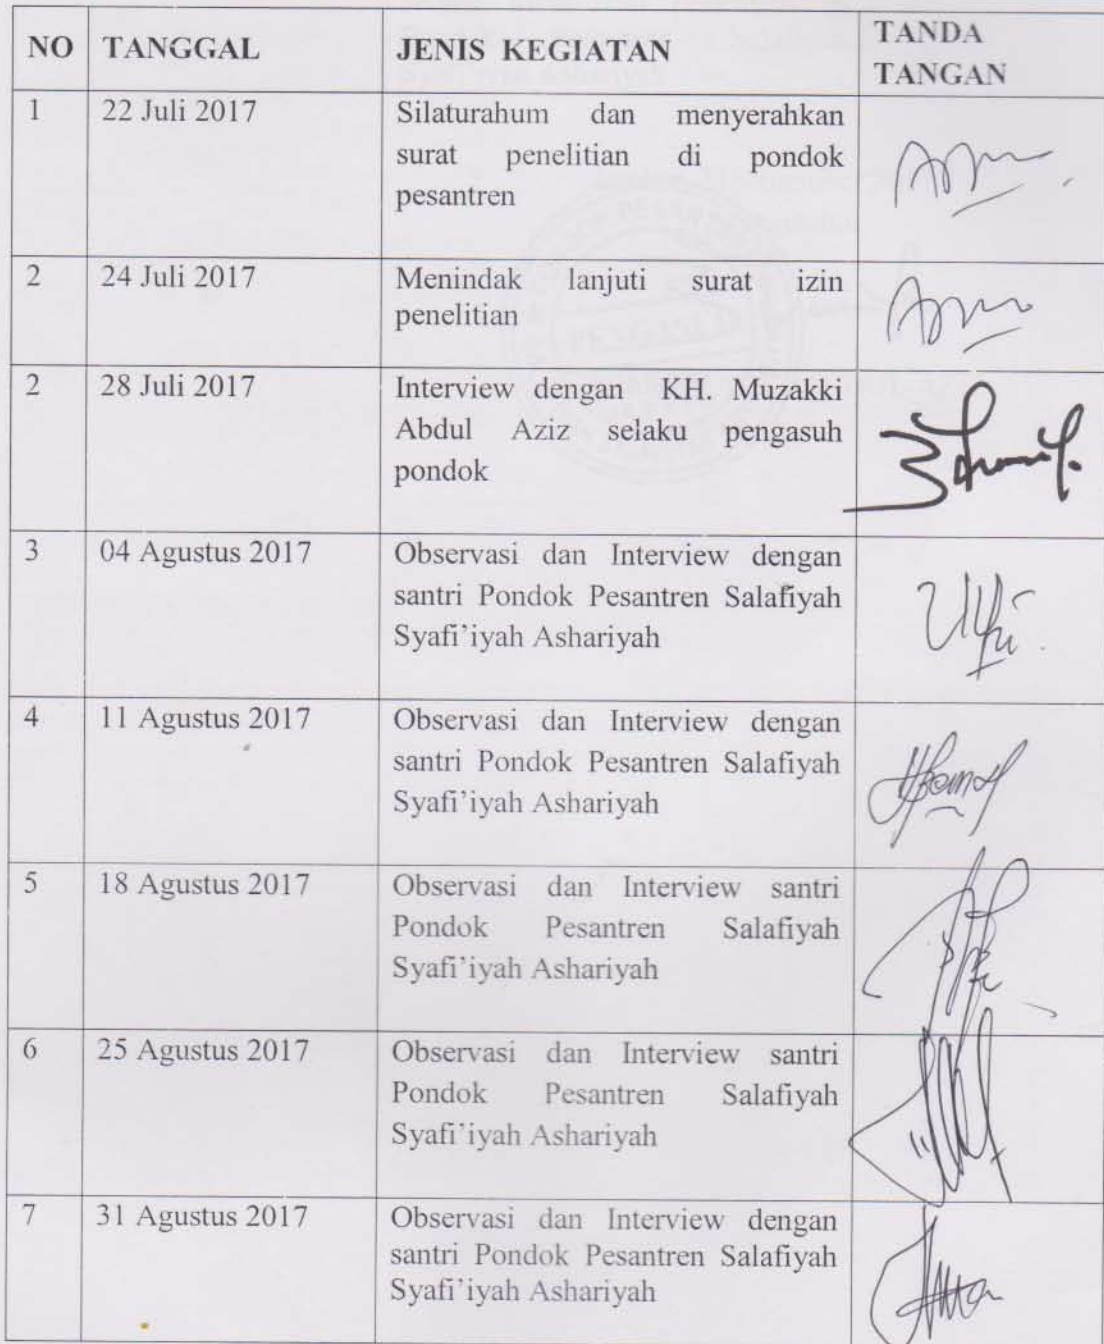 NO TANGGAL JENIS KEGIATAN TANDA
TANGAN
1 22 Juli 2017 Silaturahum dan menyerahkan
surat penelitian di pondok
pesantren
2 24 Juli 2017 Menindak lanjuti surat izin
penelitian
2 28 Juli 2017 Interview dengan KH. Muzakki
Abdul Aziz selaku pengasuh
pondok
3 04 Agustus 2017 Observasi dan Interview dengan
santri Pondok Pesantren Salafiyah
Syafi'iyah Ashariyah
4 11 Agustus 2017 Observasi dan Interview dengan
santri Pondok Pesantren Salafiyah
Syafi'iyah Ashariyah
5 18 Agustus 2017 Observasi dan Interview santri
Pondok Pesantren Salafiyah
Syafi'iyah Ashariyah
6 25 Agustus 2017 Observasi dan Interview santri
Pondok Pesantren Salafiyah
Syafi'iyah Ashariyah
7 31 Agustus 2017 Observasi dan Interview dengan
santri Pondok Pesantren Salafiyah
Syafi'iyah Ashariyah